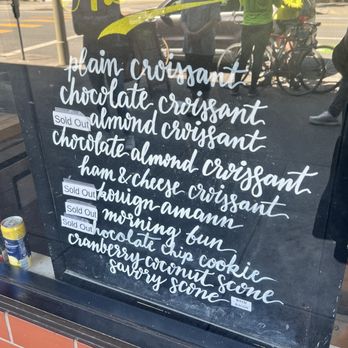 plain croissant
chocolate croissant
Sold Out almond croissant
chocolate almond croissant
ham & cheese croissant
Sold Out kouign-amann
Sold Out morning bun
Sold Out chocolate chip cookie
cranberry coconut scone
savory scone